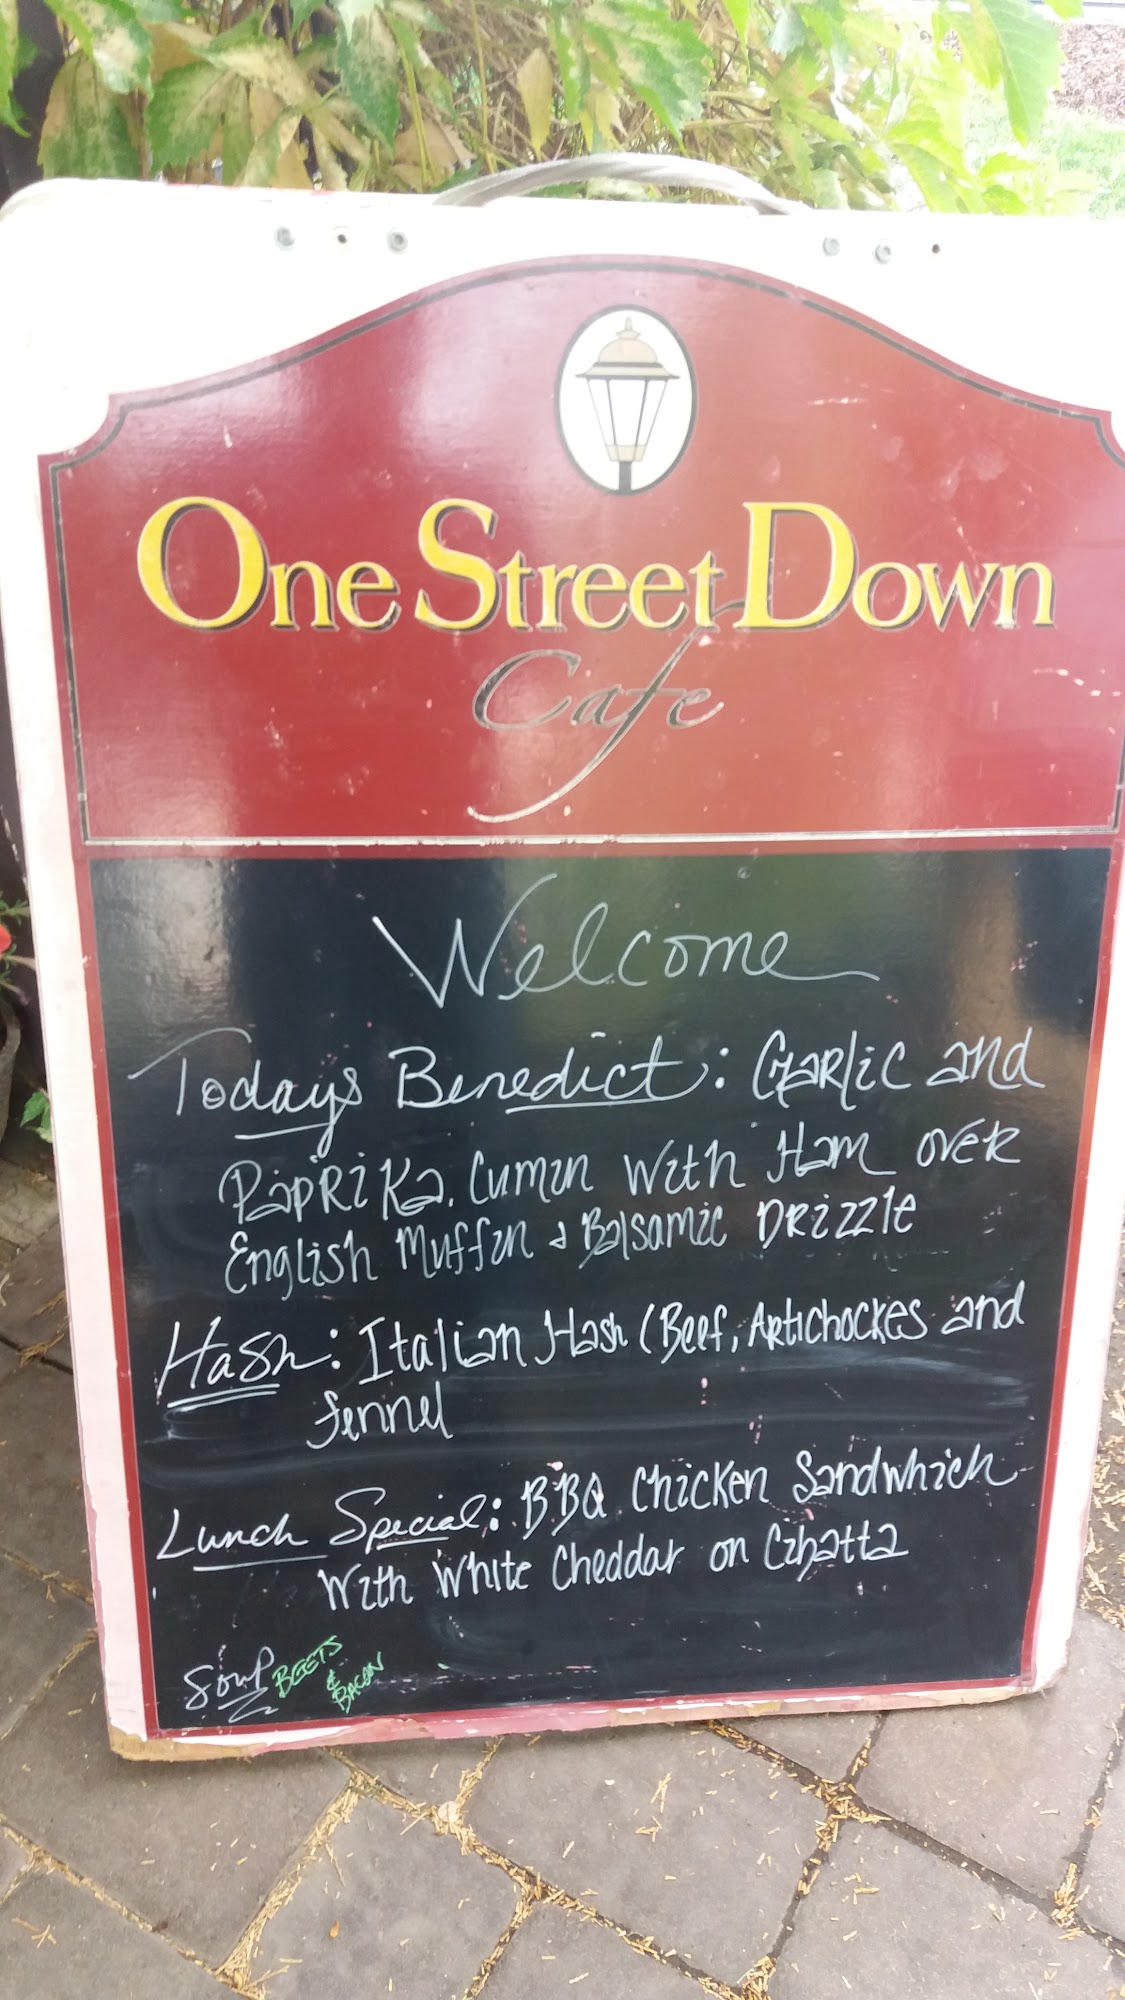 One Street Down
Cafe
Welcome
Todays Benedict: Garlic and
Paprika, Cumin with Ham over
English Muffin & Balsamic Drizzle
Hash: Italian Hash (Beef, Artichockes and
fennel
Lunch Special: BBQ Chicken Sandwhich
With White Cheddar on Cibatta
Soup BEETS
&
BACON